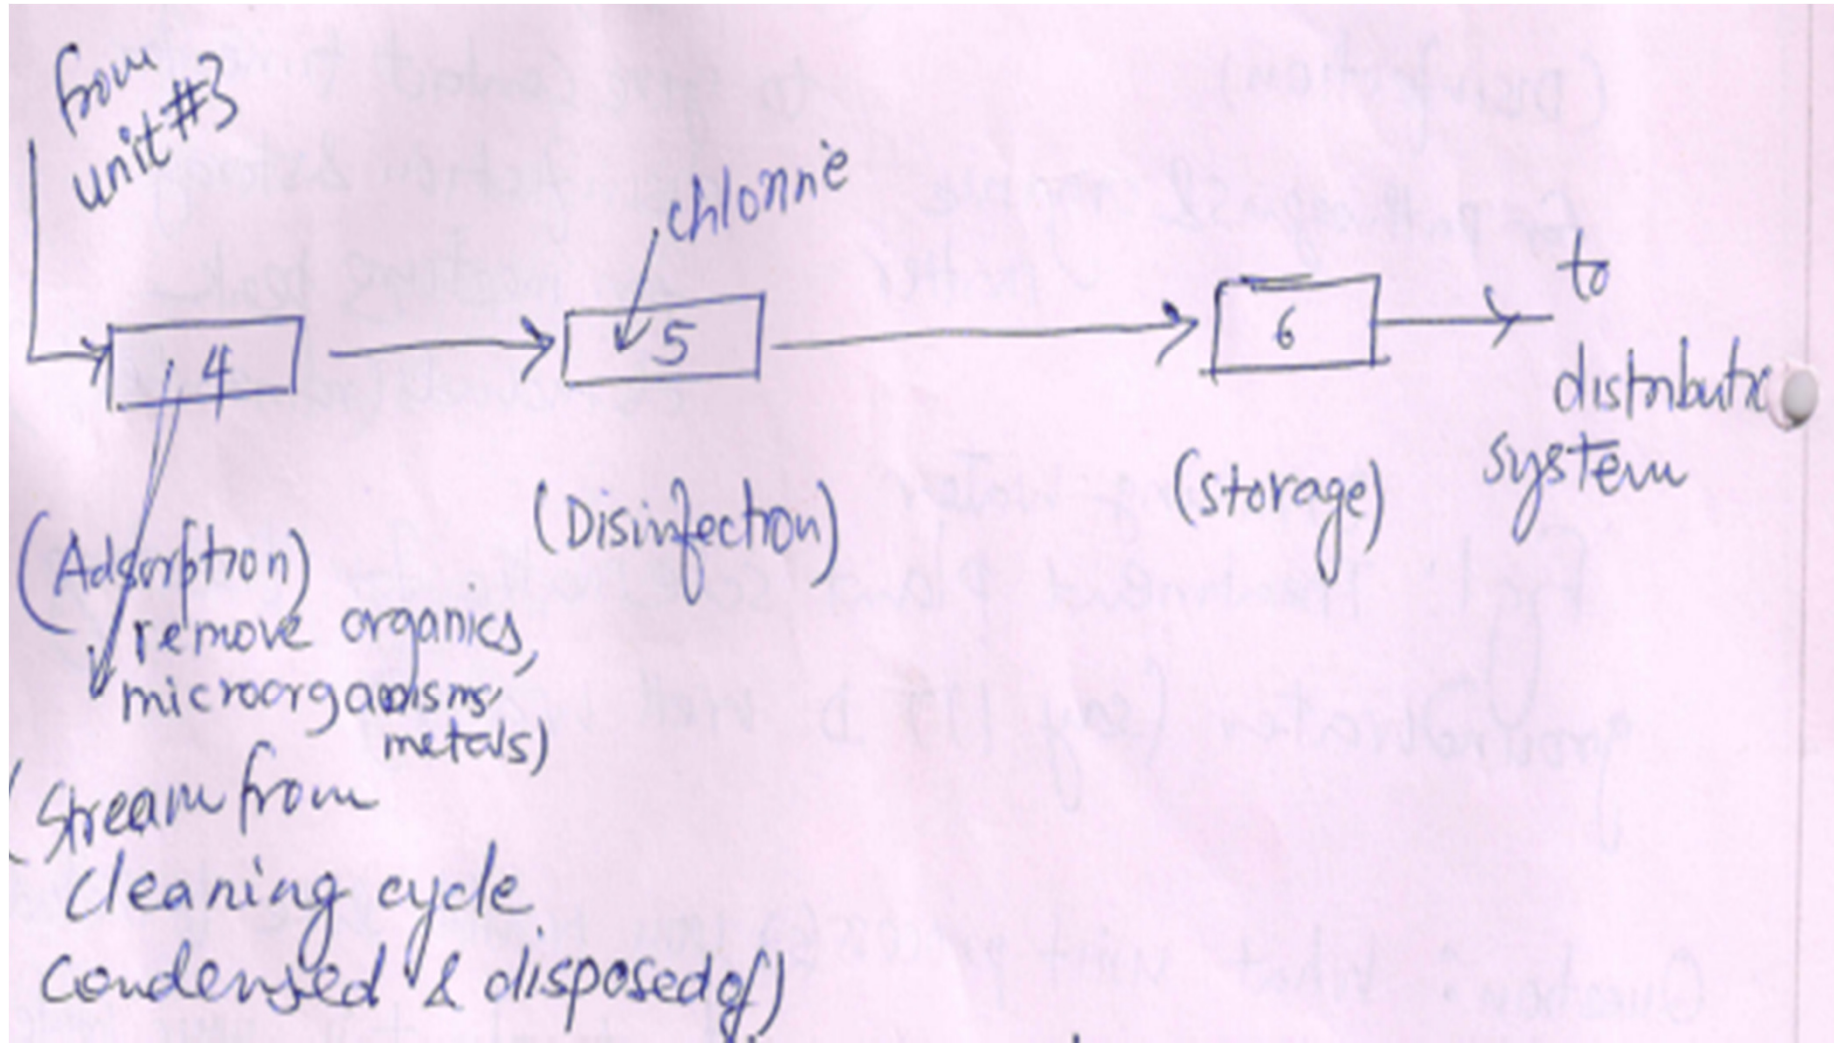 from
unit #3
chlorine
4
5
6
to
distributi
system
(Adsorption)
remove organics,
microorganisms,
metals)
(Disinfection)
(storage)
(Stream from
Cleaning cycle
Condensed & disposed of)